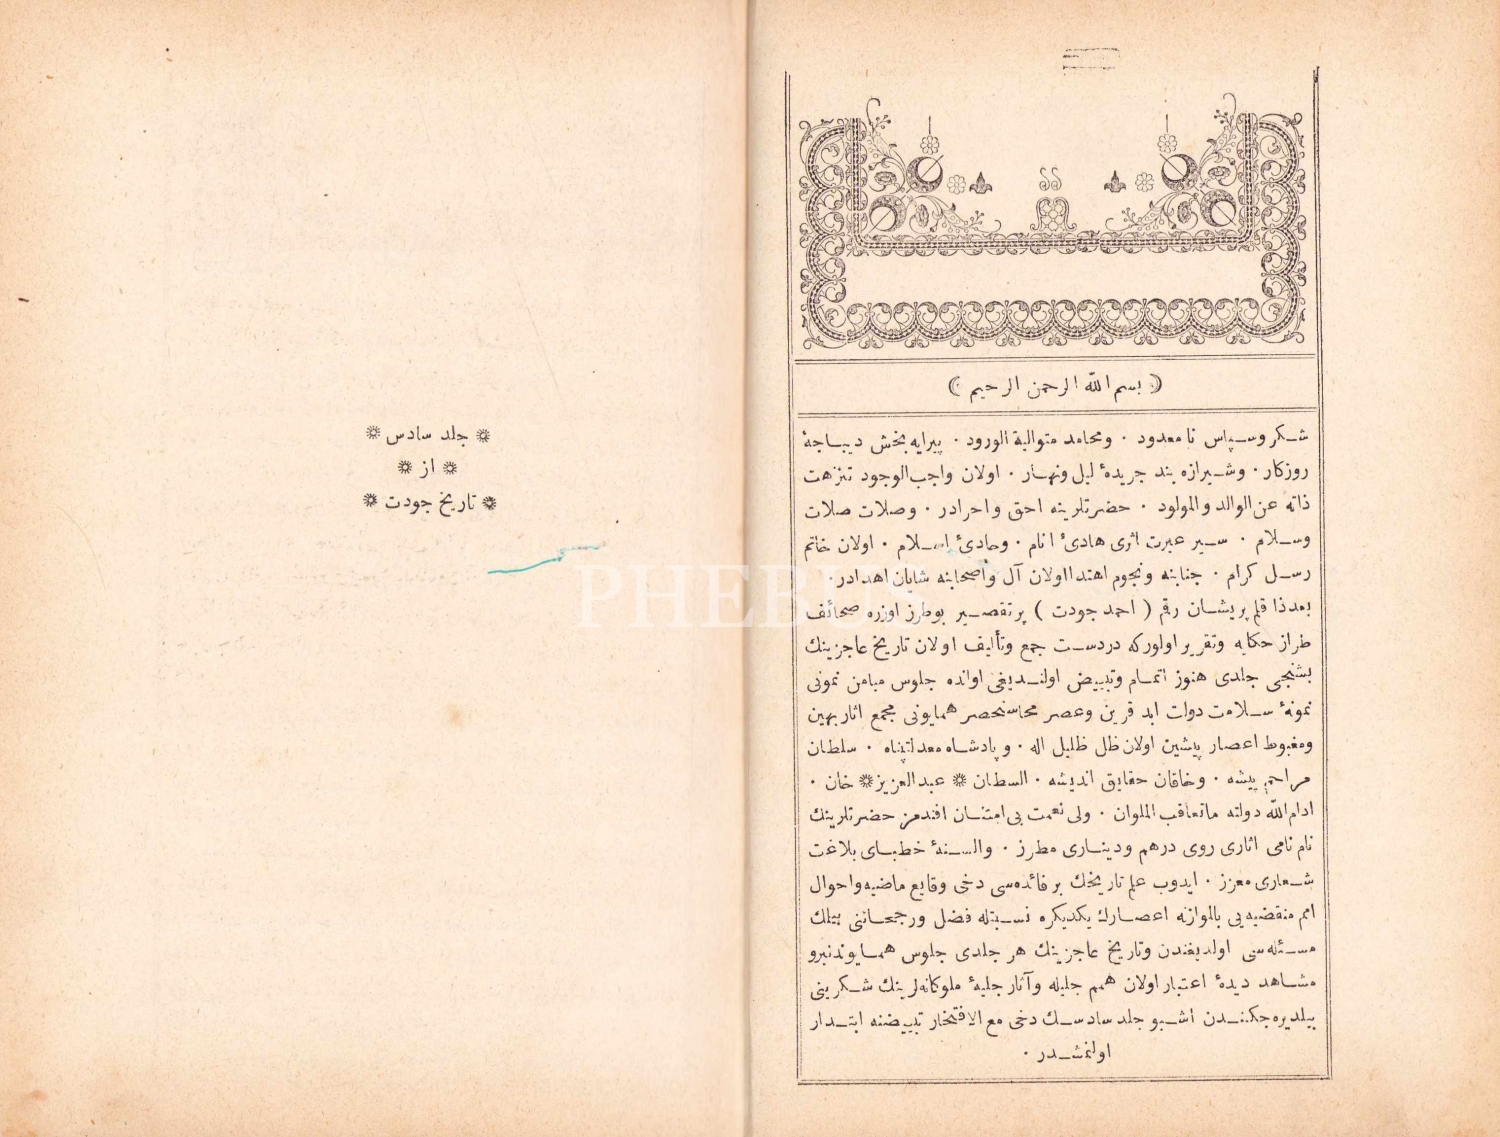 ﴿ بسم الله الرحمن الرحيم ﴾
شكر وسپاس نا معدود ٠ ومحامد متوالية الورود ٠ پيرايه بخش ديباجۀ
روزكار ٠ وشيرازه بند جريدۀ ليل ونهار ٠ اولان واجب الوجود تنزهت
ذاته عن الوالد والمولود ٠ حضرتلرينه احق واحرادر ٠ وصلات صلات
وسلام ٠ سير عبرت اثرى هادئ انام ٠ وحادئ اسلام ٠ اولان خاتم
رسل كرام ٠ جنابنه ونجوم اهتدا اولان آل واصحابنه شايان اهدادر ٠
بعدذا قلم پريشان رقم ( احمد جودت ) پرتقصير بوطرز اوزره صحائف
طراز حكايه وتقرير اولوركه دردست جمع وتأليف اولان تاريخ عاجزينك
بشنجى جلدى هنوز اتمام وتبييض اولنديغى اوانده جلوس ميامن نمونى
نمونۀ سلامت دولت ابد قرين وعصر محاسنحصر همايونى مجمع اثار بهين
ومغبوط اعصار پيشين اولان ظل ظليل اله ٠ و پادشاه معدلتپناه ٠ سلطان
مراحم پيشه ٠ وخاقان حقايق انديشه ٠ السطان ❋ عبدالعزيز ❋ خان ٠
ادام الله دولته ماتعاقب الملوان ٠ ولى نعمت بى امتنان افندمز حضرتلرينك
نام نامى اثارى روى درهم ودينارى مطرز ٠ والسنۀ خطباى بلاغت
شعارى معزز ٠ ايدوب علم تاريخك بر فائده سى دخى وقايع ماضيه واحوال
امم منقضيه يى بالموازنه اعصارك يكديكره نسبتله فضل ورجحاننى بيلك
مسئله سى اولديغندن وتاريخ عاجزينك هر جلدى جلوس همايوندنبرو
مشاهد ديدۀ اعتبار اولان همم جليله وآثار جليۀ ملوكانه لرينك شكرينى
بيلديره جكندن اشبو جلد سادسك دخى مع الافتخار تبييضنه ابتدار
اولنمشدر ٠
❋ جلد سادس ❋
❋ از ❋
❋ تاريخ جودت ❋
PHEBUS